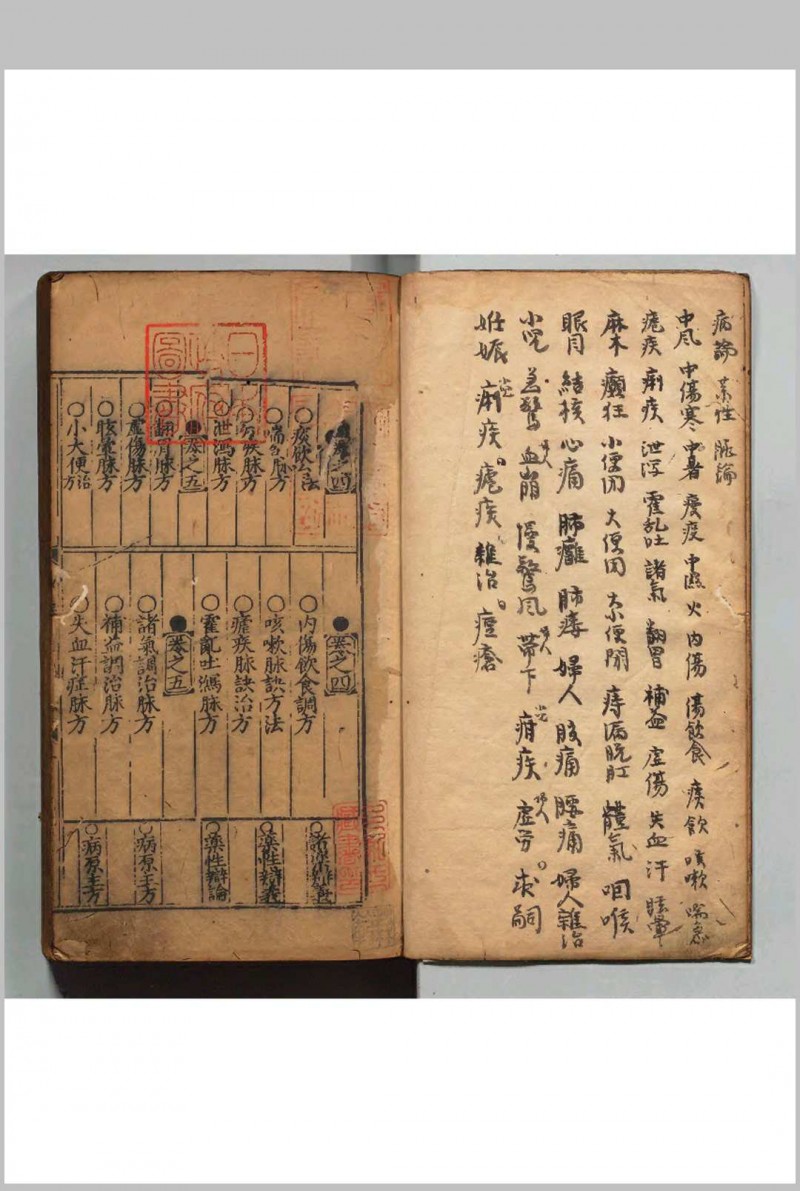 病論 藥性 脉論
中風 中傷寒 中暑 中濕 火 内傷 傷飲食 痰飲 咳嗽 喘急
瘧疾 痢疾 泄瀉 霍乱吐 諸氣 翻胃 補益 虚傷 失血 汗 眩暈
麻木 癲狂 小便 大便 便閉 痔漏脱肛 體氣 咽喉
眼目 結核 心痛 肺癰 肺痿 婦人 腹痛 腰痛 婦人雜治
小児 急驚 婦人 血崩 慢驚風 婦人 帯下 小児 疳疾 婦人 虚勞 求嗣
妊娠 小児 痢疾 瘧疾 雜治 痘瘡
卷之四
○痰飲 法
○喘急脉方
○ 疾脉方
○泄瀉脉方
卷之五
○翻胃脉方
○虚傷脉方
○咳 脉方
○小大便治方
●卷之四
○内傷飲食調方
○咳嗽脉訣方法
○瘧疾脉訣治方
○霍亂吐瀉脉方
●卷之五
○諸氣調治脉方
○補益調治脉方
○失血汗症脉方
○諸藥辨
○藥性辯
○藥性辯論
○病原主方
○病原主方